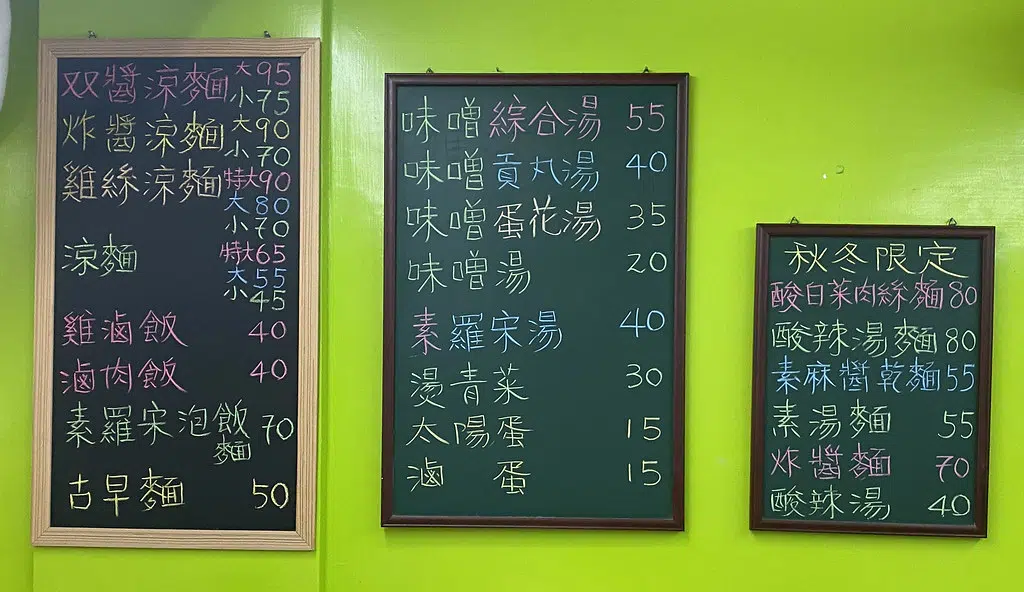 双醬涼麵 大95
小75
炸醬涼麵 大90
小70
雞絲涼麵 特大90
大80
小70
涼麵 特大65
大55
小45
雞滷飯 40
滷肉飯 40
素羅宋泡飯 70
麵
古早麵 50
味噌綜合湯 55
味噌貢丸湯 40
味噌蛋花湯 35
味噌湯 20
素羅宋湯 40
燙青菜 30
太陽蛋 15
滷蛋 15
秋冬限定
酸白菜肉絲麵80
酸辣湯麵80
素麻醬乾麵55
素湯麵 55
炸醬麵 70
酸辣湯 40